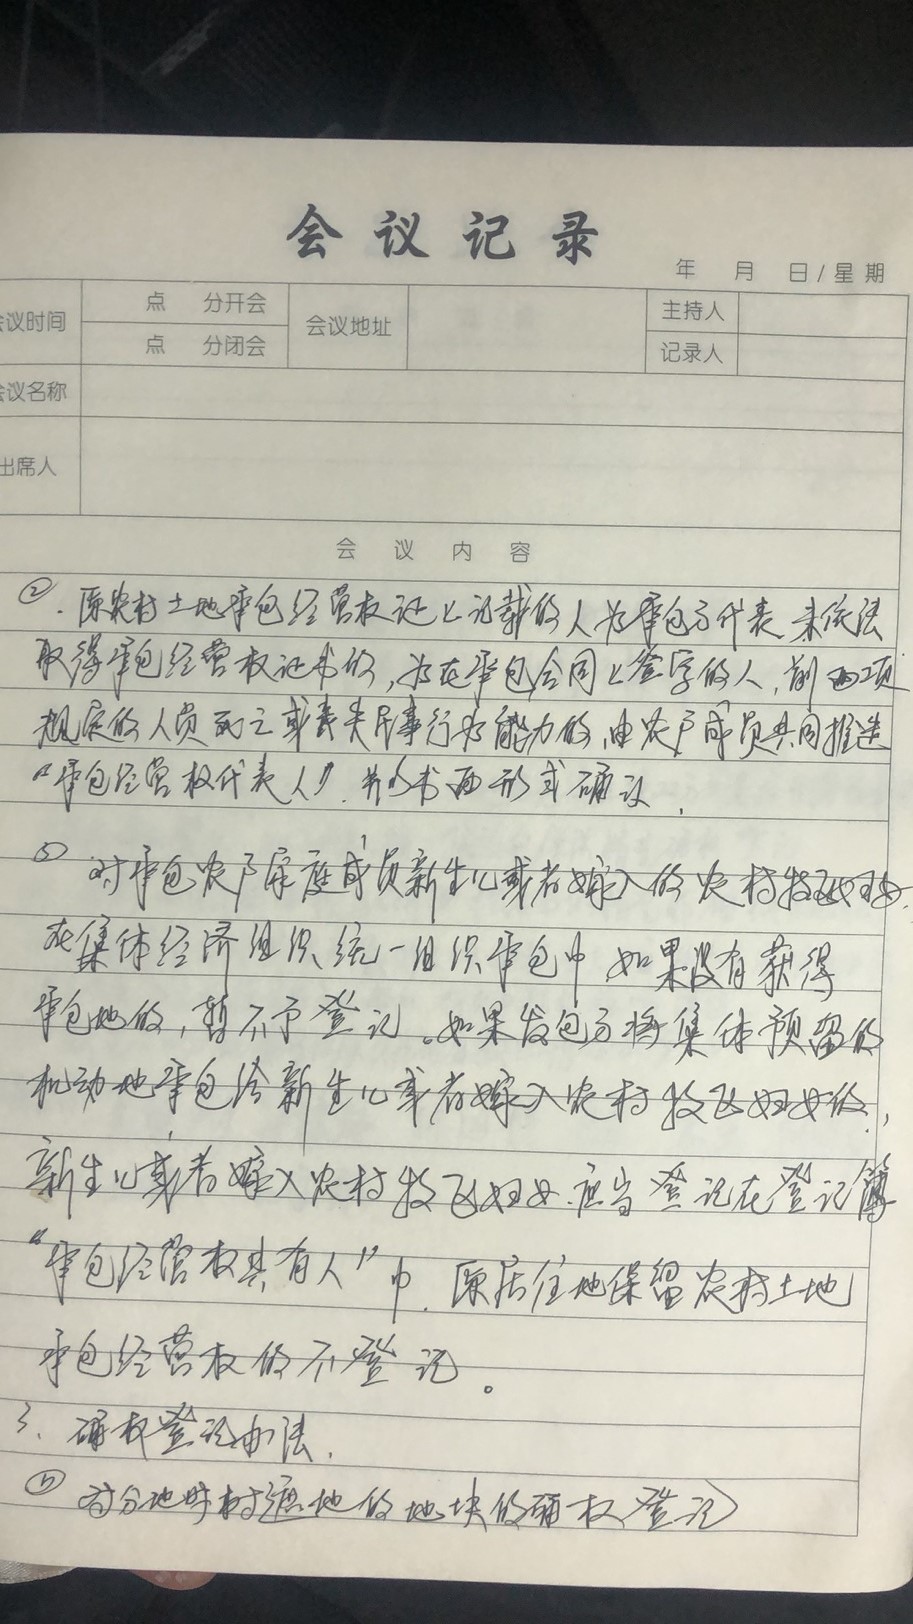 会议记录
年 月 日/星期
会议时间 点 分开会 会议地址 主持人
点 分闭会 记录人
会议名称
出席人
会议内容
②.原农村土地承包经营权证上记载的人为承包方代表 未依法
取得承包经营权证书的,为在承包合同上签字的人,前两项
规定的人员死亡或丧失民事行为能力的,由农户成员共同推选
“承包经营权代表人”.并以书面形式确认.
对承包农户家庭成员新生儿或者嫁入的农村妇女.
在集体经济组织统一组织承包中 如果没有获得
承包地的,暂不予登记。如果发包方将集体预留的
机动地承包给新生儿或者嫁入农村妇女的,
新生儿或者嫁入农村妇女.应当登记在登记簿
“承包经营权共有人”中.原居住地保留农村土地
承包经营权的不登记。
3、确权登记办法.
对分地时村 地的地块的确权登记